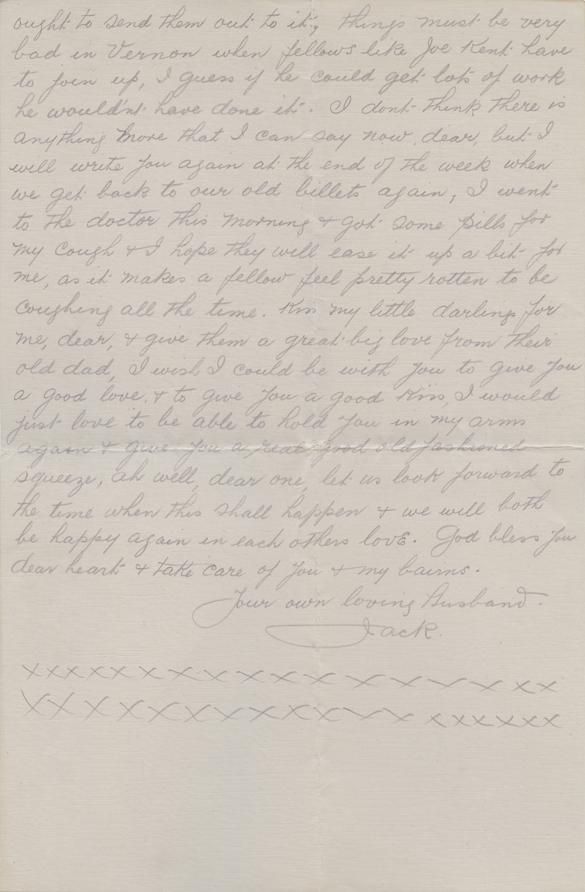 ought to send them out to it, things must be very
bad in Vernon when fellows like Joe Kent have
to join up, I guess if he could get lots of work
he wouldn't have done it. I dont think there is
anything more that I can say now, dear, but I
will write you again at the end of the week when
we get back to our old billets again, I went
to the doctor this morning & got some pills for
my cough & I hope they will ease it up a bit for
me, as it makes a fellow feel pretty rotten to be
coughing all the time. Kiss my little darlings for
me, dear, & give them a great big love from their
old dad, I wish I could be with you to give you
a good love, & to give you a good kiss, I would
just love to be able to hold you in my arms
again & give you a real good old fashioned
squeeze, ah well, dear one, let us look forward to
the time when this shall happen & we will both
be happy again in each others love. God bless you
dear heart & take care of you & my bairns.
Your own loving Husband.
Jack.
xxxxxxxxxxxxxxxxxx
xxxxxxxxxxxxxxxxxxx